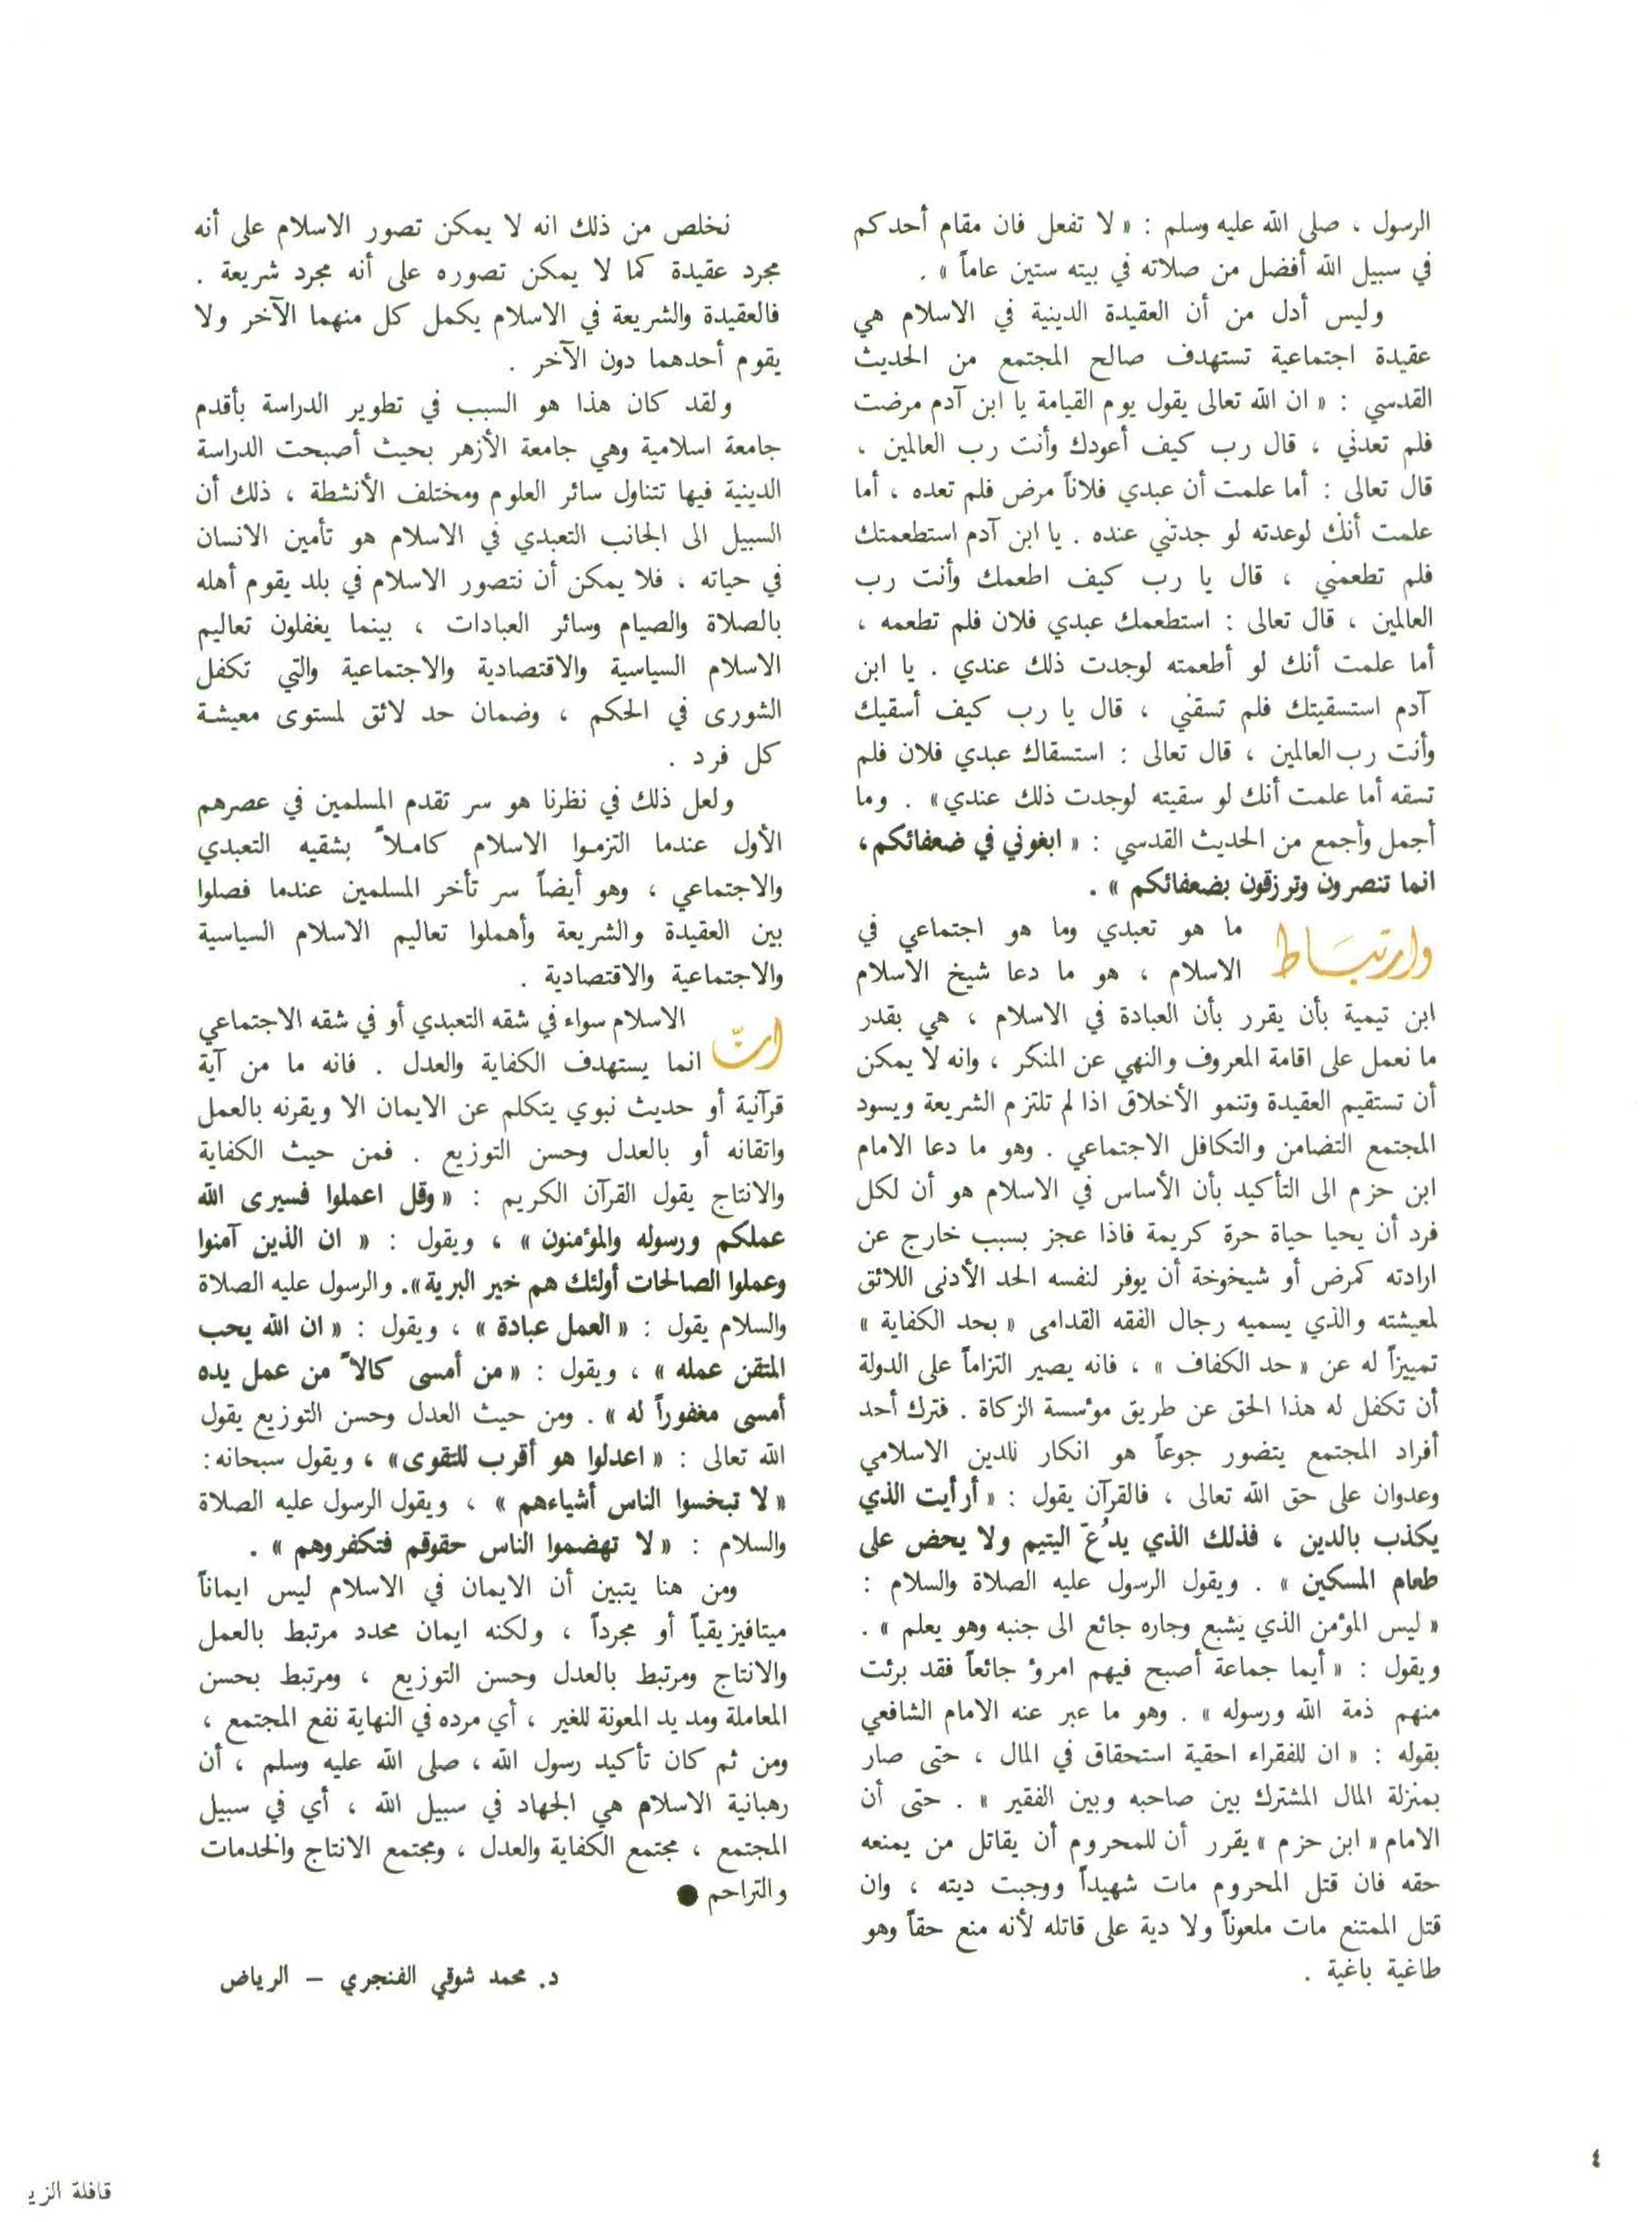 الرسول ، صلى الله عليه وسلم : « لا تفعل فان مقام أحدكم
في سبيل الله أفضل من صلاته في بيته ستين عاماً » .
وليس أدل من أن العقيدة الدينية في الاسلام هي
عقيدة اجتماعية تستهدف صالح المجتمع من الحديث
القدسي : « ان الله تعالى يقول يوم القيامة يا ابن آدم مرضت
فلم تعدني ، قال رب كيف أعودك وأنت رب العالمين ،
قال تعالى : أما علمت أن عبدي فلاناً مرض فلم تعده ، أما
علمت أنك لوعدته لو جدتني عنده . يا ابن آدم استطعمتك
فلم تطعمني ، قال يا رب كيف اطعمك وأنت رب
العالمين ، قال تعالى : استطعمك عبدي فلان فلم تطعمه ،
أما علمت أنك لو أطعمته لوجدت ذلك عندي . يا ابن
آدم استسقيتك فلم تسقني ، قال يا رب كيف أسقيك
وأنت رب العالمين ، قال تعالى : استسقاك عبدي فلان فلم
تسقه أما علمت أنك لو سقيته لوجدت ذلك عندي» . وما
أجمل وأجمع من الحديث القدسي : « ابغوني في ضعفائكم ،
انما تنصرون وترزقون بضعفائكم » .
وارتباط ما هو تعبدي وما هو اجتماعي في
الاسلام ، هو ما دعا شيخ الاسلام
ابن تيمية بأن يقرر بأن العبادة في الاسلام ، هي بقدر
ما نعمل على اقامة المعروف والنهي عن المنكر ، وانه لا يمكن
أن تستقيم العقيدة وتنمو الأخلاق اذا لم تلتزم الشريعة ويسود
المجتمع التضامن والتكافل الاجتماعي . وهو ما دعا الامام
ابن حزم الى التأكيد بأن الأساس في الاسلام هو أن لكل
فرد أن يحيا حياة حرة كريمة فاذا عجز بسبب خارج عن
ارادته كمرض أو شيخوخة أن يوفر لنفسه الحد الأدنى اللائق
لمعيشته والذي يسميه رجال الفقه القدامى « بحد الكفاية »
تمييزاً له عن « حد الكفاف » ، فانه يصير التزاماً على الدولة
أن تكفل له هذا الحق عن طريق مؤسسة الزكاة . فترك أحد
أفراد المجتمع يتضور جوعاً هو انكار للدين الاسلامي
وعدوان على حق الله تعالى ، فالقرآن يقول : « أرأيت الذي
يكذب بالدين ، فذلك الذي يدُعّ اليتيم ولا يحض على
طعام المسكين » . ويقول الرسول عليه الصلاة والسلام :
« ليس المؤمن الذي يشبع وجاره جائع الى جنبه وهو يعلم » .
ويقول : « أيما جماعة أصبح فيهم امرؤ جائعاً فقد برئت
منهم ذمة الله ورسوله » . وهو ما عبر عنه الامام الشافعي
بقوله : « ان للفقراء احقية استحقاق في المال ، حتى صار
بمنزلة المال المشترك بين صاحبه وبين الفقير » . حتى أن
الامام « ابن حزم » يقرر أن للمحروم أن يقاتل من يمنعه
حقه فان قتل المحروم مات شهيداً ووجبت ديته ، وان
قتل الممتنع مات ملعوناً ولا دية على قاتله لأنه منع حقاً وهو
طاغية باغية .
نخلص من ذلك انه لا يمكن تصور الاسلام على أنه
مجرد عقيدة كما لا يمكن تصوره على أنه مجرد شريعة .
فالعقيدة والشريعة في الاسلام يكمل كل منهما الآخر ولا
يقوم أحدهما دون الآخر .
ولقد كان هذا هو السبب في تطوير الدراسة بأقدم
جامعة اسلامية وهي جامعة الأزهر بحيث أصبحت الدراسة
الدينية فيها تتناول سائر العلوم ومختلف الأنشطة ، ذلك أن
السبيل الى الجانب التعبدي في الاسلام هو تأمين الانسان
في حياته ، فلا يمكن أن نتصور الاسلام في بلد يقوم أهله
بالصلاة والصيام وسائر العبادات ، بينما يغفلون تعاليم
الاسلام السياسية والاقتصادية والاجتماعية والتي تكفل
الشورى في الحكم ، وضمان حد لائق لمستوى معيشة
كل فرد .
ولعل ذلك في نظرنا هو سر تقدم المسلمين في عصرهم
الأول عندما التزموا الاسلام كاملاً بشقيه التعبدي
والاجتماعي ، وهو أيضاً سر تأخر المسلمين عندما فصلوا
بين العقيدة والشريعة وأهملوا تعاليم الاسلام السياسية
والاجتماعية والاقتصادية .
انّ الاسلام سواء في شقه التعبدي أو في شقه الاجتماعي
انما يستهدف الكفاية والعدل . فانه ما من آية
قرآنية أو حديث نبوي يتكلم عن الايمان الا ويقرنه بالعمل
واتقانه أو بالعدل وحسن التوزيع . فمن حيث الكفاية
والانتاج يقول القرآن الكريم : « وقل اعملوا فسيرى الله
عملكم ورسوله والمؤمنون » ، ويقول : « ان الذين آمنوا
وعملوا الصالحات أولئك هم خير البرية». والرسول عليه الصلاة
والسلام يقول : « العمل عبادة » ، ويقول : « ان الله يحب
المتقن عمله » ، ويقول : « من أمسى كالاً من عمل يده
أمسى مغفوراً له » . ومن حيث العدل وحسن التوزيع يقول
الله تعالى : « اعدلوا هو أقرب للتقوى» ، ويقول سبحانه:
« لا تبخسوا الناس أشياءهم » ، ويقول الرسول عليه الصلاة
والسلام : « لا تهضموا الناس حقوقم فتكفروهم » .
ومن هنا يتبين أن الايمان في الاسلام ليس ايماناً
ميتافيزيقياً أو مجرداً ، ولكنه ايمان محدد مرتبط بالعمل
والانتاج ومرتبط بالعدل وحسن التوزيع ، ومرتبط بحسن
المعاملة ومد يد المعونة للغير ، أي مرده في النهاية نفع المجتمع ،
ومن ثم كان تأكيد رسول الله ، صلى الله عليه وسلم ، أن
رهبانية الاسلام هي الجهاد في سبيل الله ، أي في سبيل
المجتمع ، مجتمع الكفاية والعدل ، ومجتمع الانتاج والخدمات
والتراحم ●
د. محمد شوقي الفنجري – الرياض
٤
قافلة الزي